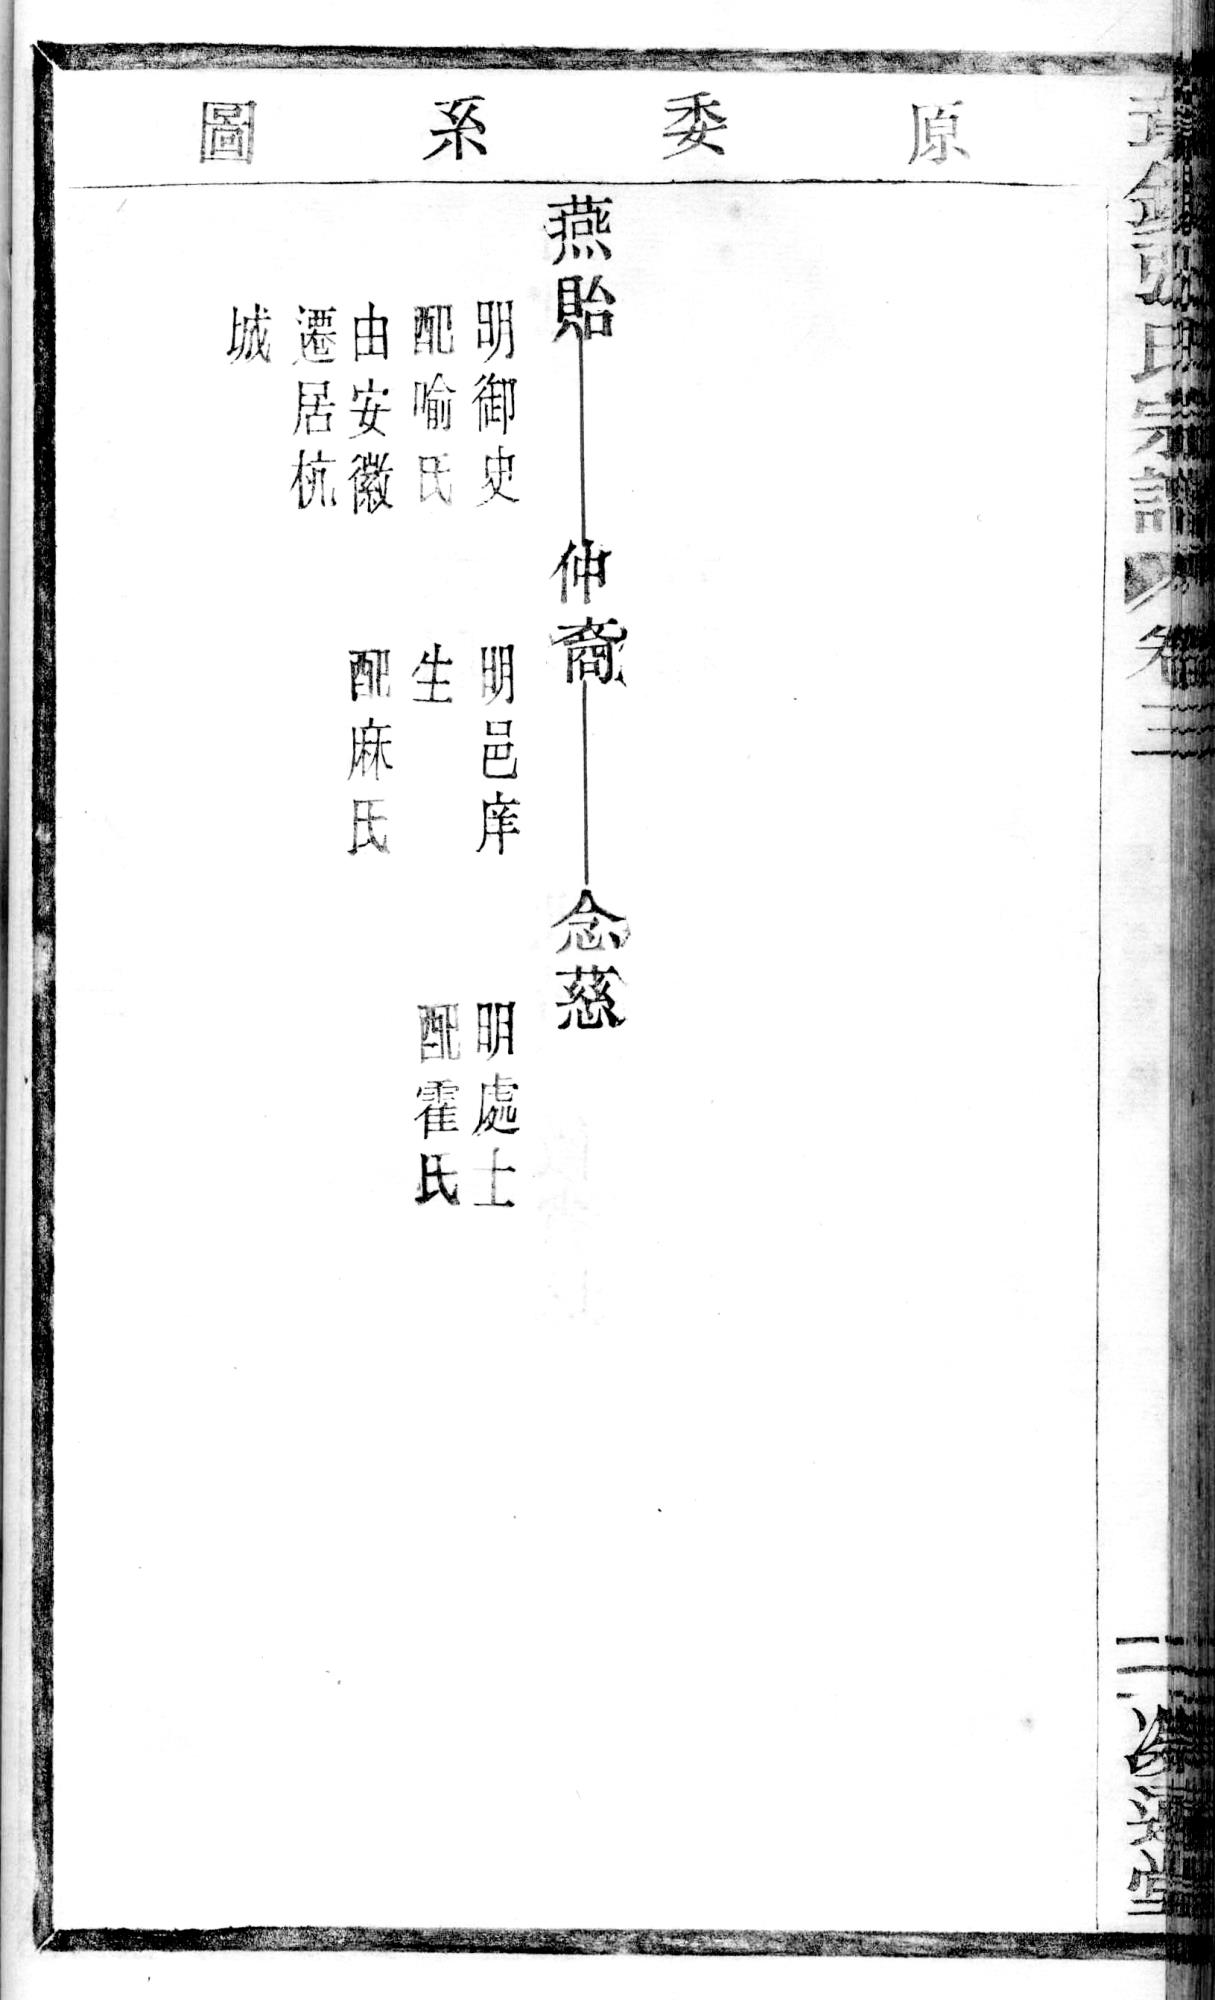 原委系圖
燕貽
明御史
配喻氏
由安徽
遷居杭
城
仲裔
明邑庠
生
配麻氏
念慈
明處士
配霍氏
氏宗譜
卷三
堂